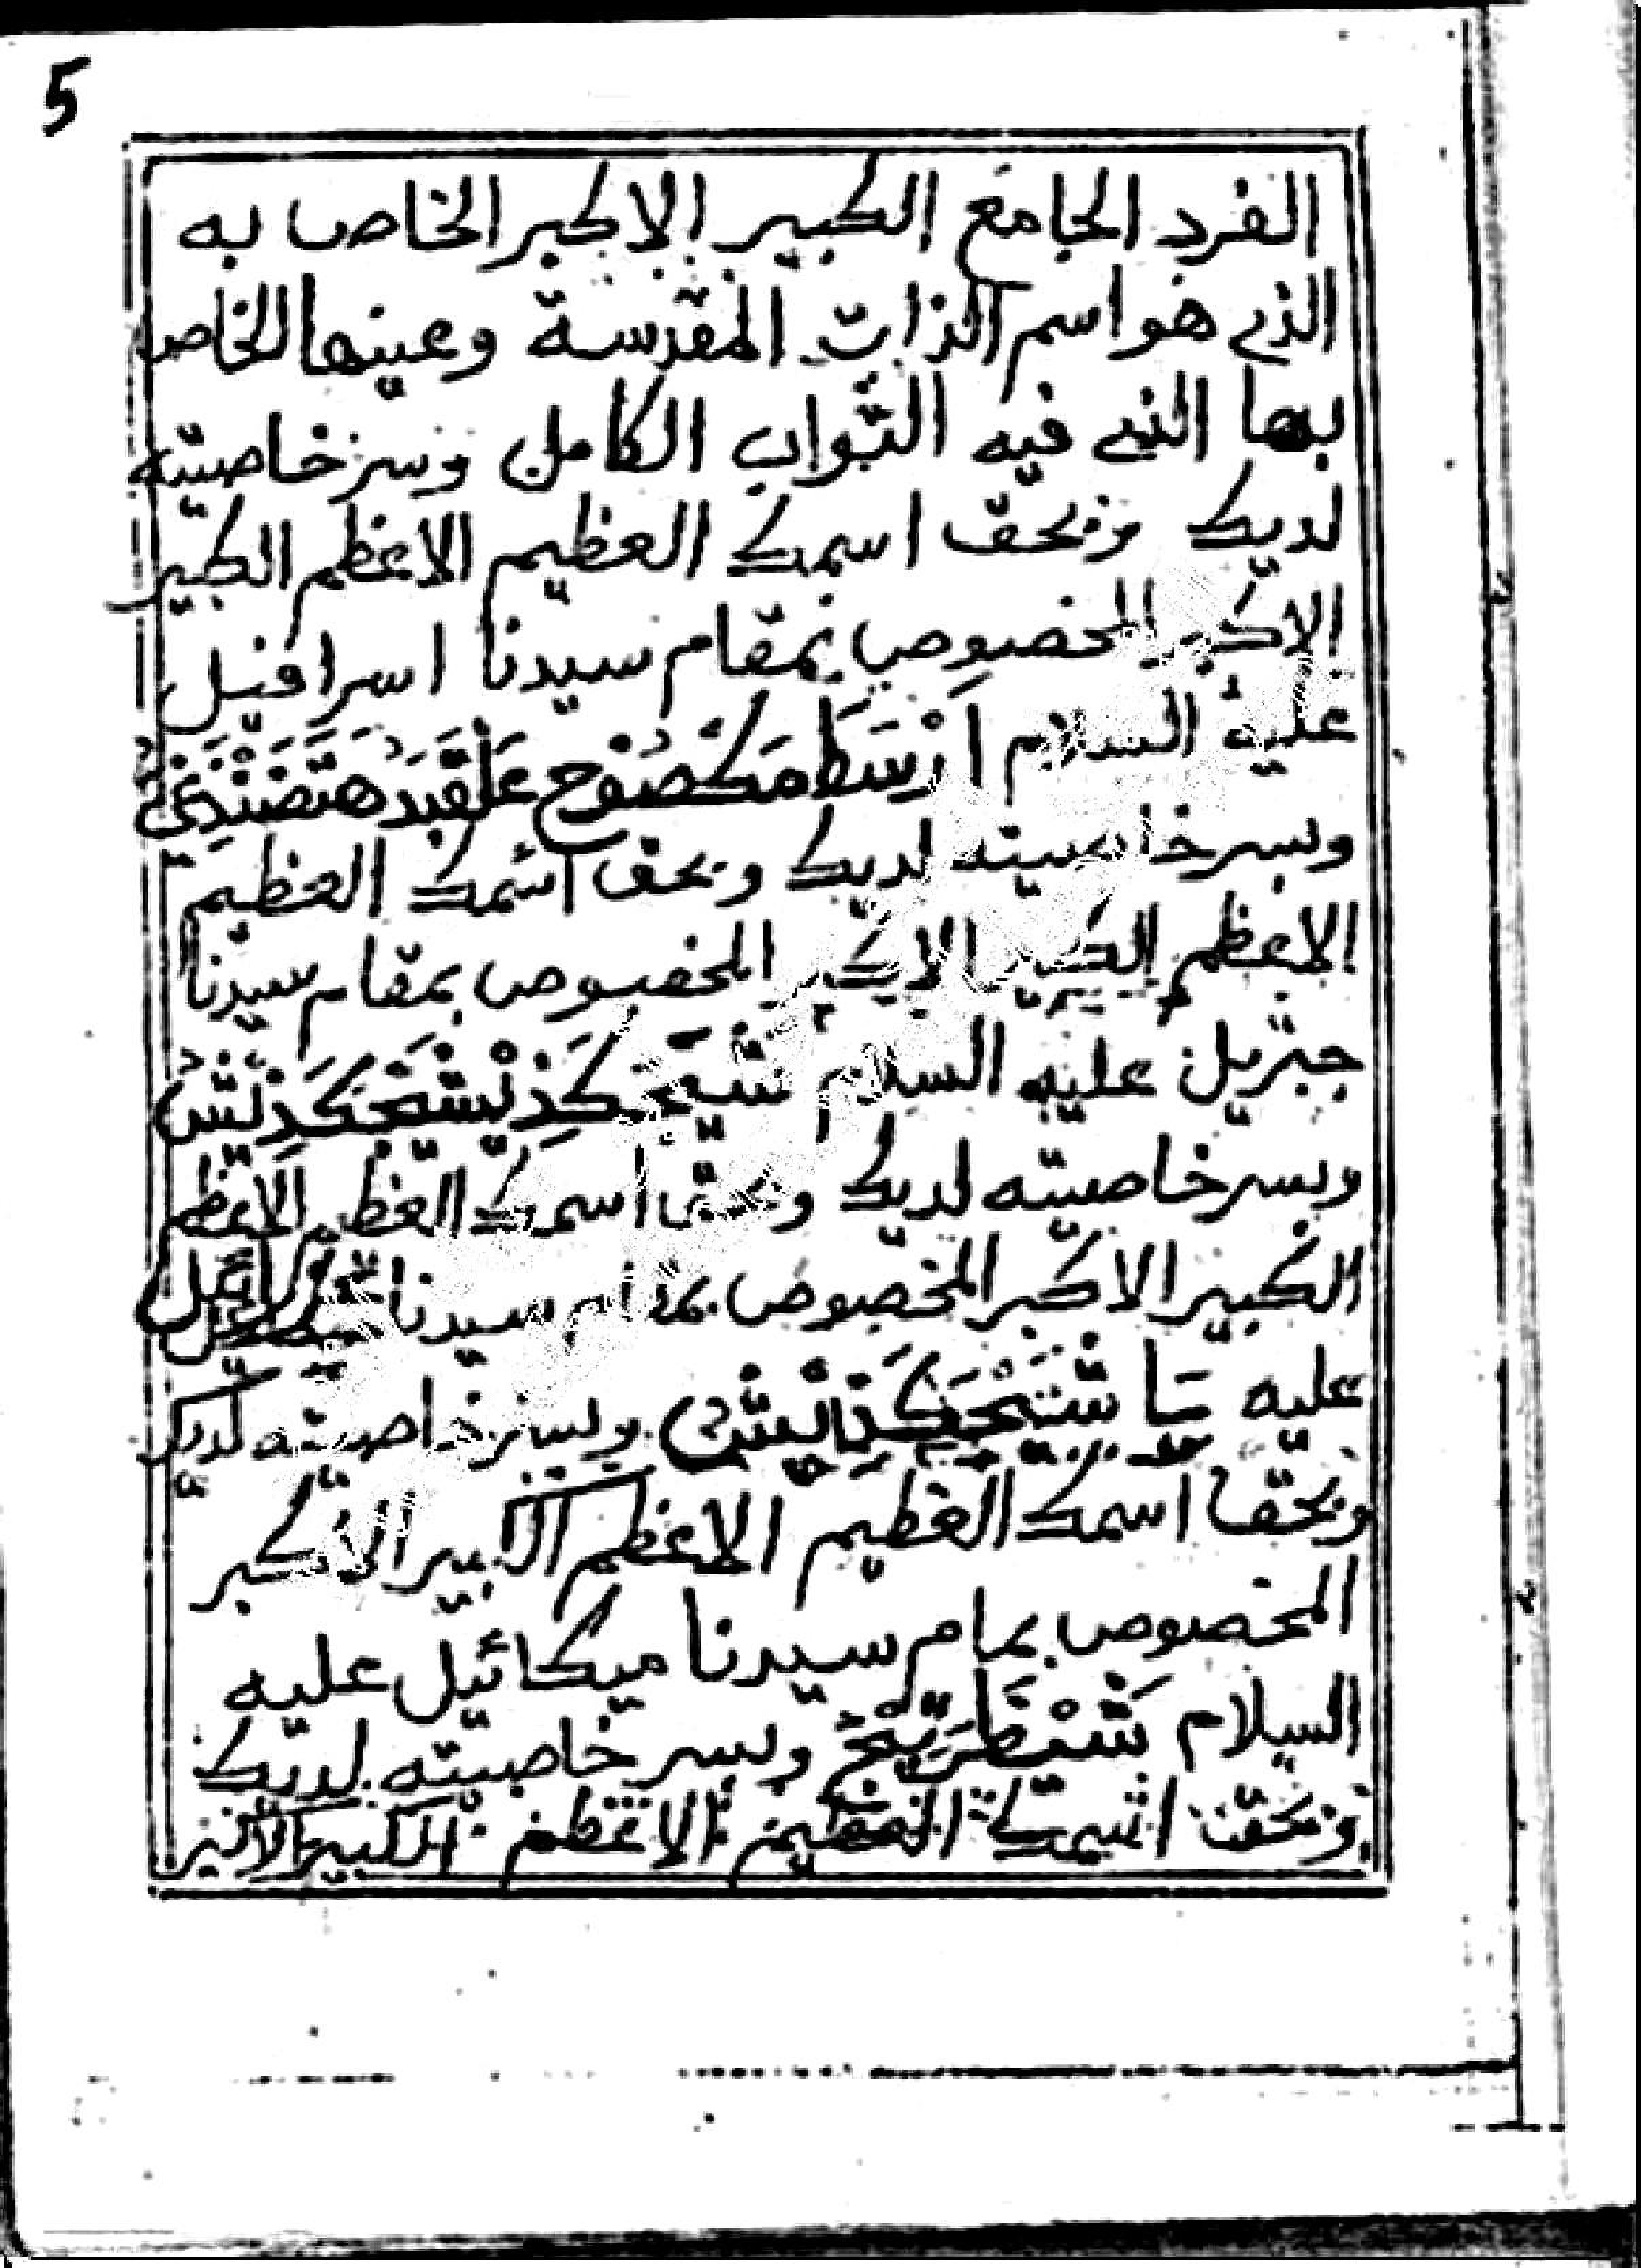 5
الفرد الجامع الكبير الاكبر الخاص به
الذے هو اسم الذات المقدسة وعينها الخاص
بها الذے فيه الثواب الكامل وسر خاصيته
لديك وبحق اسمك العظيم الاعظم الكبير
الاكبر المخصوص بمقام سيدنا اسرافيل
عليه السلام
وبسر خاصيته لديك وبحق اسمك العظيم
الاعظم الكبير الاكبر المخصوص بمقام سيدنا
جبريل عليه السلام
وبسر خاصيته لديك وبحق اسمك العظيم الاعظم
الكبير الاكبر المخصوص بمقام سيدنا
عليه وبسر خاصيته لديك
وبحق اسمك العظيم الاعظم الكبير الاكبر
المخصوص بمام سيدنا ميكائيل عليه
السلام وبسر خاصيته لديك
وبحق اسمك العظيم الاعظم الكبير الاكبر